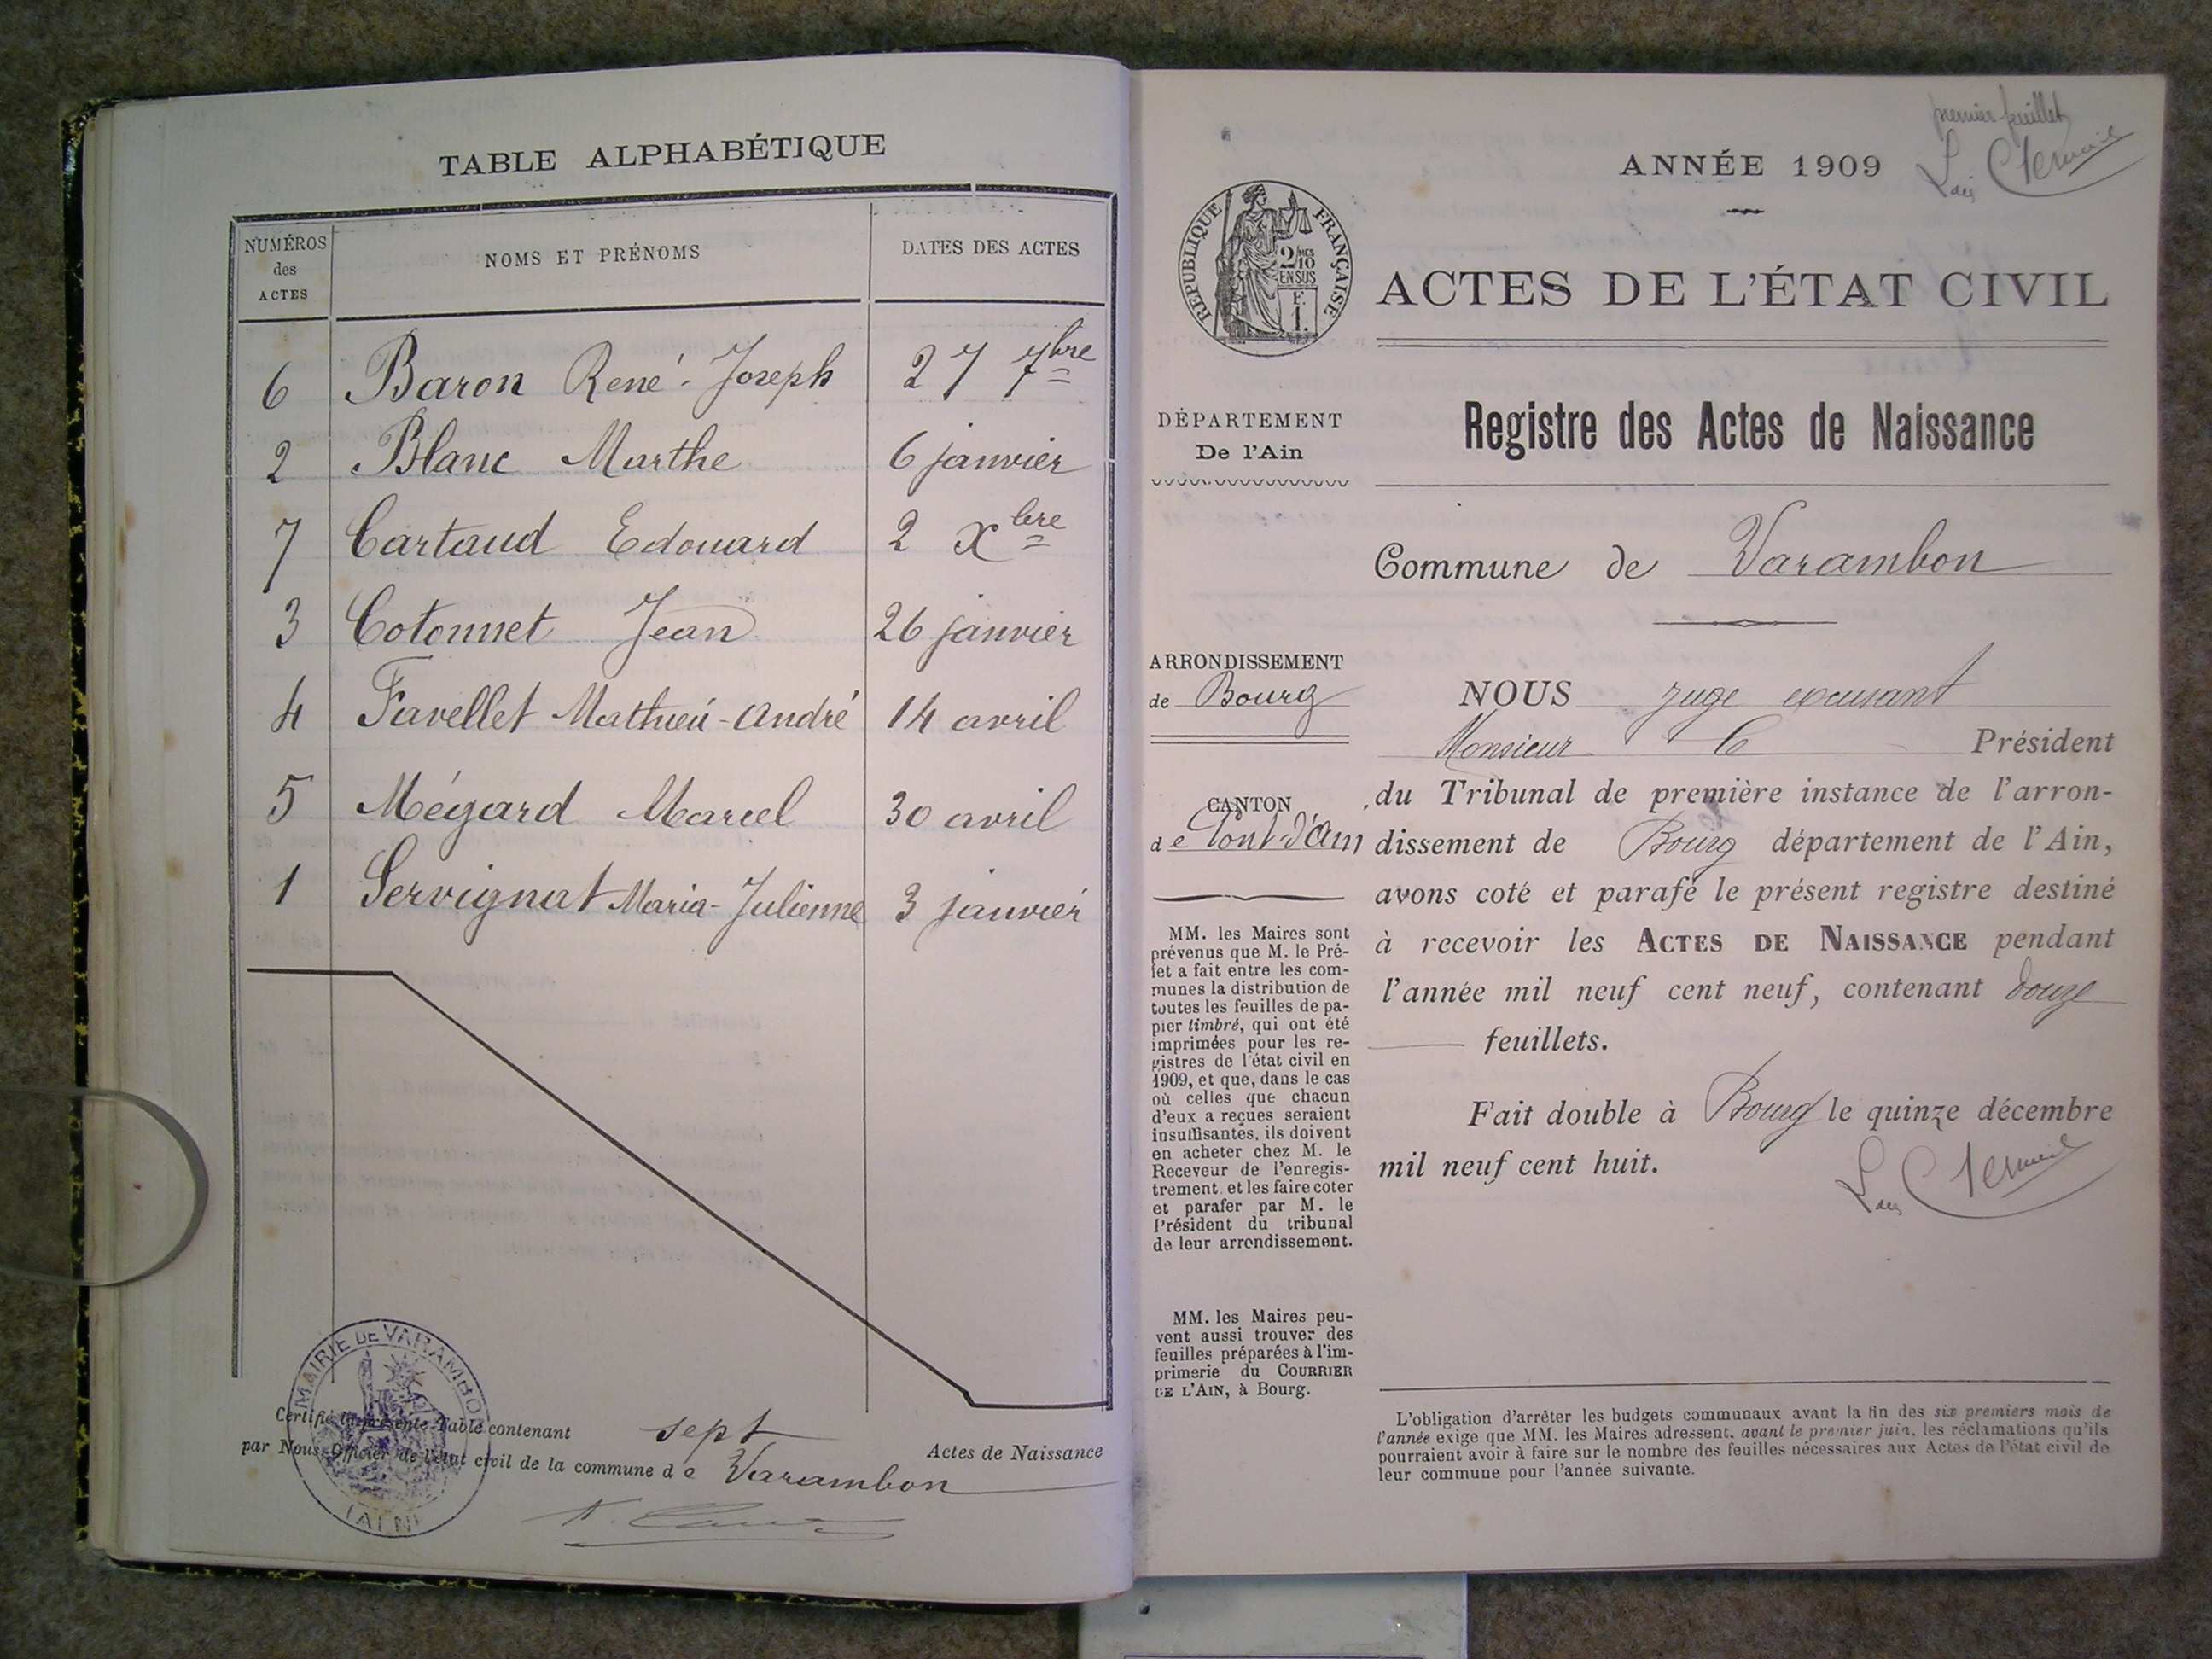 TABLE ALPHABÉTIQUE
NUMÉROS
des
ACTES
NOMS ET PRÉNOMS
DATES DES ACTES
6 Baron René-Joseph 27 7bre
2 Blanc Marthe 6 janvier
7 Cartaud Edouard 2 Xbre
3 Cotonnet Jean 26 janvier
4 Favellet Mathieu-André 14 avril
5 Mégard Marcel 30 avril
1 Servignat Maria-Julienne 3 janvier
MAIRIE DE VARAMBON
(AIN)
Certifié la présente Table contenant sept Actes de Naissance
par Nous, Officier de l'état civil de la commune de Varambon
premier feuillet
ANNÉE 1909
RÉPUBLIQUE FRANÇAISE
2/10
EN SUS
F.
1.
ACTES DE L'ÉTAT CIVIL
DÉPARTEMENT
De l'Ain
Registre des Actes de Naissance
Commune de Varambon
ARRONDISSEMENT
de Bourg
CANTON
de Pont-d'Ain
MM. les Maires sont
prévenus que M. le Pré-
fet a fait entre les com-
munes la distribution de
toutes les feuilles de pa-
pier timbré, qui ont été
imprimées pour les re-
gistres de l'état civil en
1909, et que, dans le cas
où celles que chacun
d'eux a reçues seraient
insuffisantes, ils doivent
en acheter chez M. le
Receveur de l'enregis-
trement et les faire coter
et parafer par M. le
Président du tribunal
de leur arrondissement.
MM. les Maires peu-
vent aussi trouver des
feuilles préparées à l'im-
primerie du COURRIER
DE L'AIN, à Bourg.
NOUS juge
Monsieur le Président
du Tribunal de première instance de l'arron-
dissement de Bourg département de l'Ain,
avons coté et parafé le présent registre destiné
à recevoir les ACTES DE NAISSANCE pendant
l'année mil neuf cent neuf, contenant douze
feuillets.
Fait double à Bourg le quinze décembre
mil neuf cent huit.
L'obligation d'arrêter les budgets communaux avant la fin des six premiers mois de
l'année exige que MM. les Maires adressent, avant le premier juin, les réclamations qu'ils
pourraient avoir à faire sur le nombre des feuilles nécessaires aux Actes de l'état civil de
leur commune pour l'année suivante.